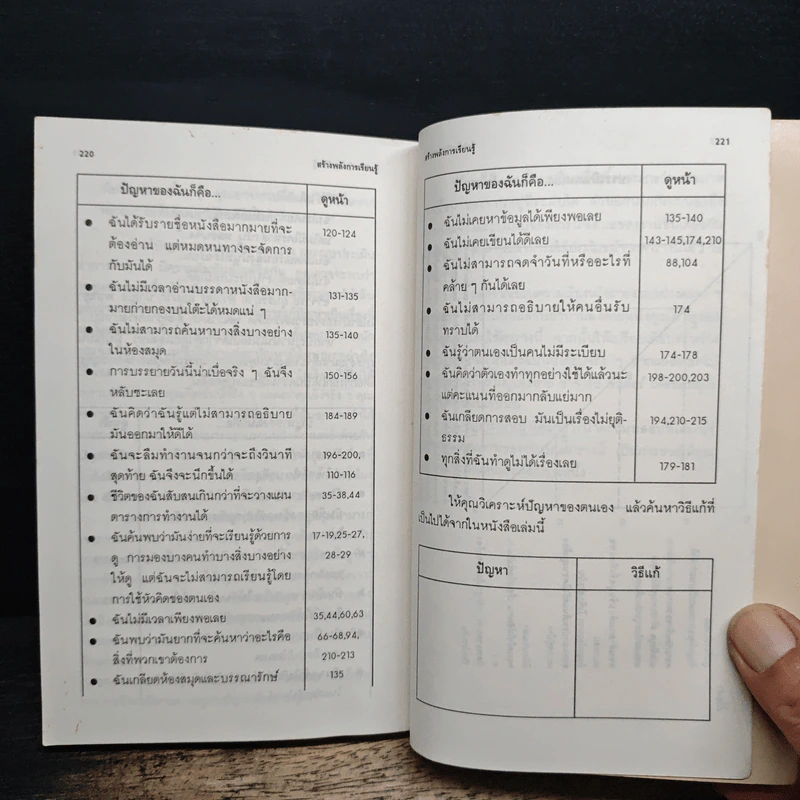 220
สร้างพลังการเรียนรู้
ปัญหาของฉันก็คือ... ดูหน้า
● ฉันได้รับรายชื่อหนังสือมากมายที่จะ 120-124
ต้องอ่าน แต่หมดหนทางจะจัดการ
กับมันได้
● ฉันไม่มีเวลาอ่านบรรดาหนังสือมาก- 131-135
มายก่ายกองบนโต๊ะได้หมดแน่ ๆ
● ฉันไม่สามารถค้นหาบางสิ่งบางอย่าง 135-140
ในห้องสมุด
● การบรรยายวันนี้น่าเบื่อจริง ๆ ฉันจึง 150-156
หลับซะเลย
● ฉันคิดว่าฉันรู้แต่ไม่สามารถอธิบาย 184-189
มันออกมาให้ดีได้
● ฉันจะลืมทำงานจนกว่าจะถึงวินาที 196-200,
สุดท้าย ฉันจึงจะนึกขึ้นได้ 110-116
● ชีวิตของฉันสับสนเกินกว่าที่จะวางแผน 35-38,44
ตารางการทำงานได้
● ฉันค้นพบว่ามันง่ายที่จะเรียนรู้ด้วยการ 17-19,25-27,
ดู การมองบางคนทำบางสิ่งบางอย่าง 28-29
ให้ดู แต่ฉันจะไม่สามารถเรียนรู้โดย
การใช้หัวคิดของตนเอง
● ฉันไม่มีเวลาเพียงพอเลย 35,44,60,63
● ฉันพบว่ามันยากที่จะค้นหาว่าอะไรคือ 66-68,94,
สิ่งที่พวกเขาต้องการ 210-213
● ฉันเกลียดห้องสมุดและบรรณารักษ์ 135
221
สร้างพลังการเรียนรู้
ปัญหาของฉันก็คือ... ดูหน้า
● ฉันไม่เคยหาข้อมูลได้เพียงพอเลย 135-140
● ฉันไม่เคยเขียนได้ดีเลย 143-145,174,210
● ฉันไม่สามารถจดจำวันที่หรืออะไรที่ 88,104
คล้าย ๆ กันได้เลย
● ฉันไม่สามารถอธิบายให้คนอื่นรับ 174
ทราบได้
● ฉันรู้ว่าตนเองเป็นคนไม่มีระเบียบ 174-178
● ฉันคิดว่าตัวเองทำทุกอย่างใช้ได้แล้วนะ 198-200,203
แต่คะแนนที่ออกมากลับแย่มาก
● ฉันเกลียดการสอบ มันเป็นเรื่องไม่ยุติ- 194,210-215
ธรรม
● ทุกสิ่งที่ฉันทำดูไม่ได้เรื่องเลย 179-181
ให้คุณวิเคราะห์ปัญหาของตนเอง แล้วค้นหาวิธีแก้ที่
เป็นไปได้จากในหนังสือเล่มนี้
ปัญหา วิธีแก้